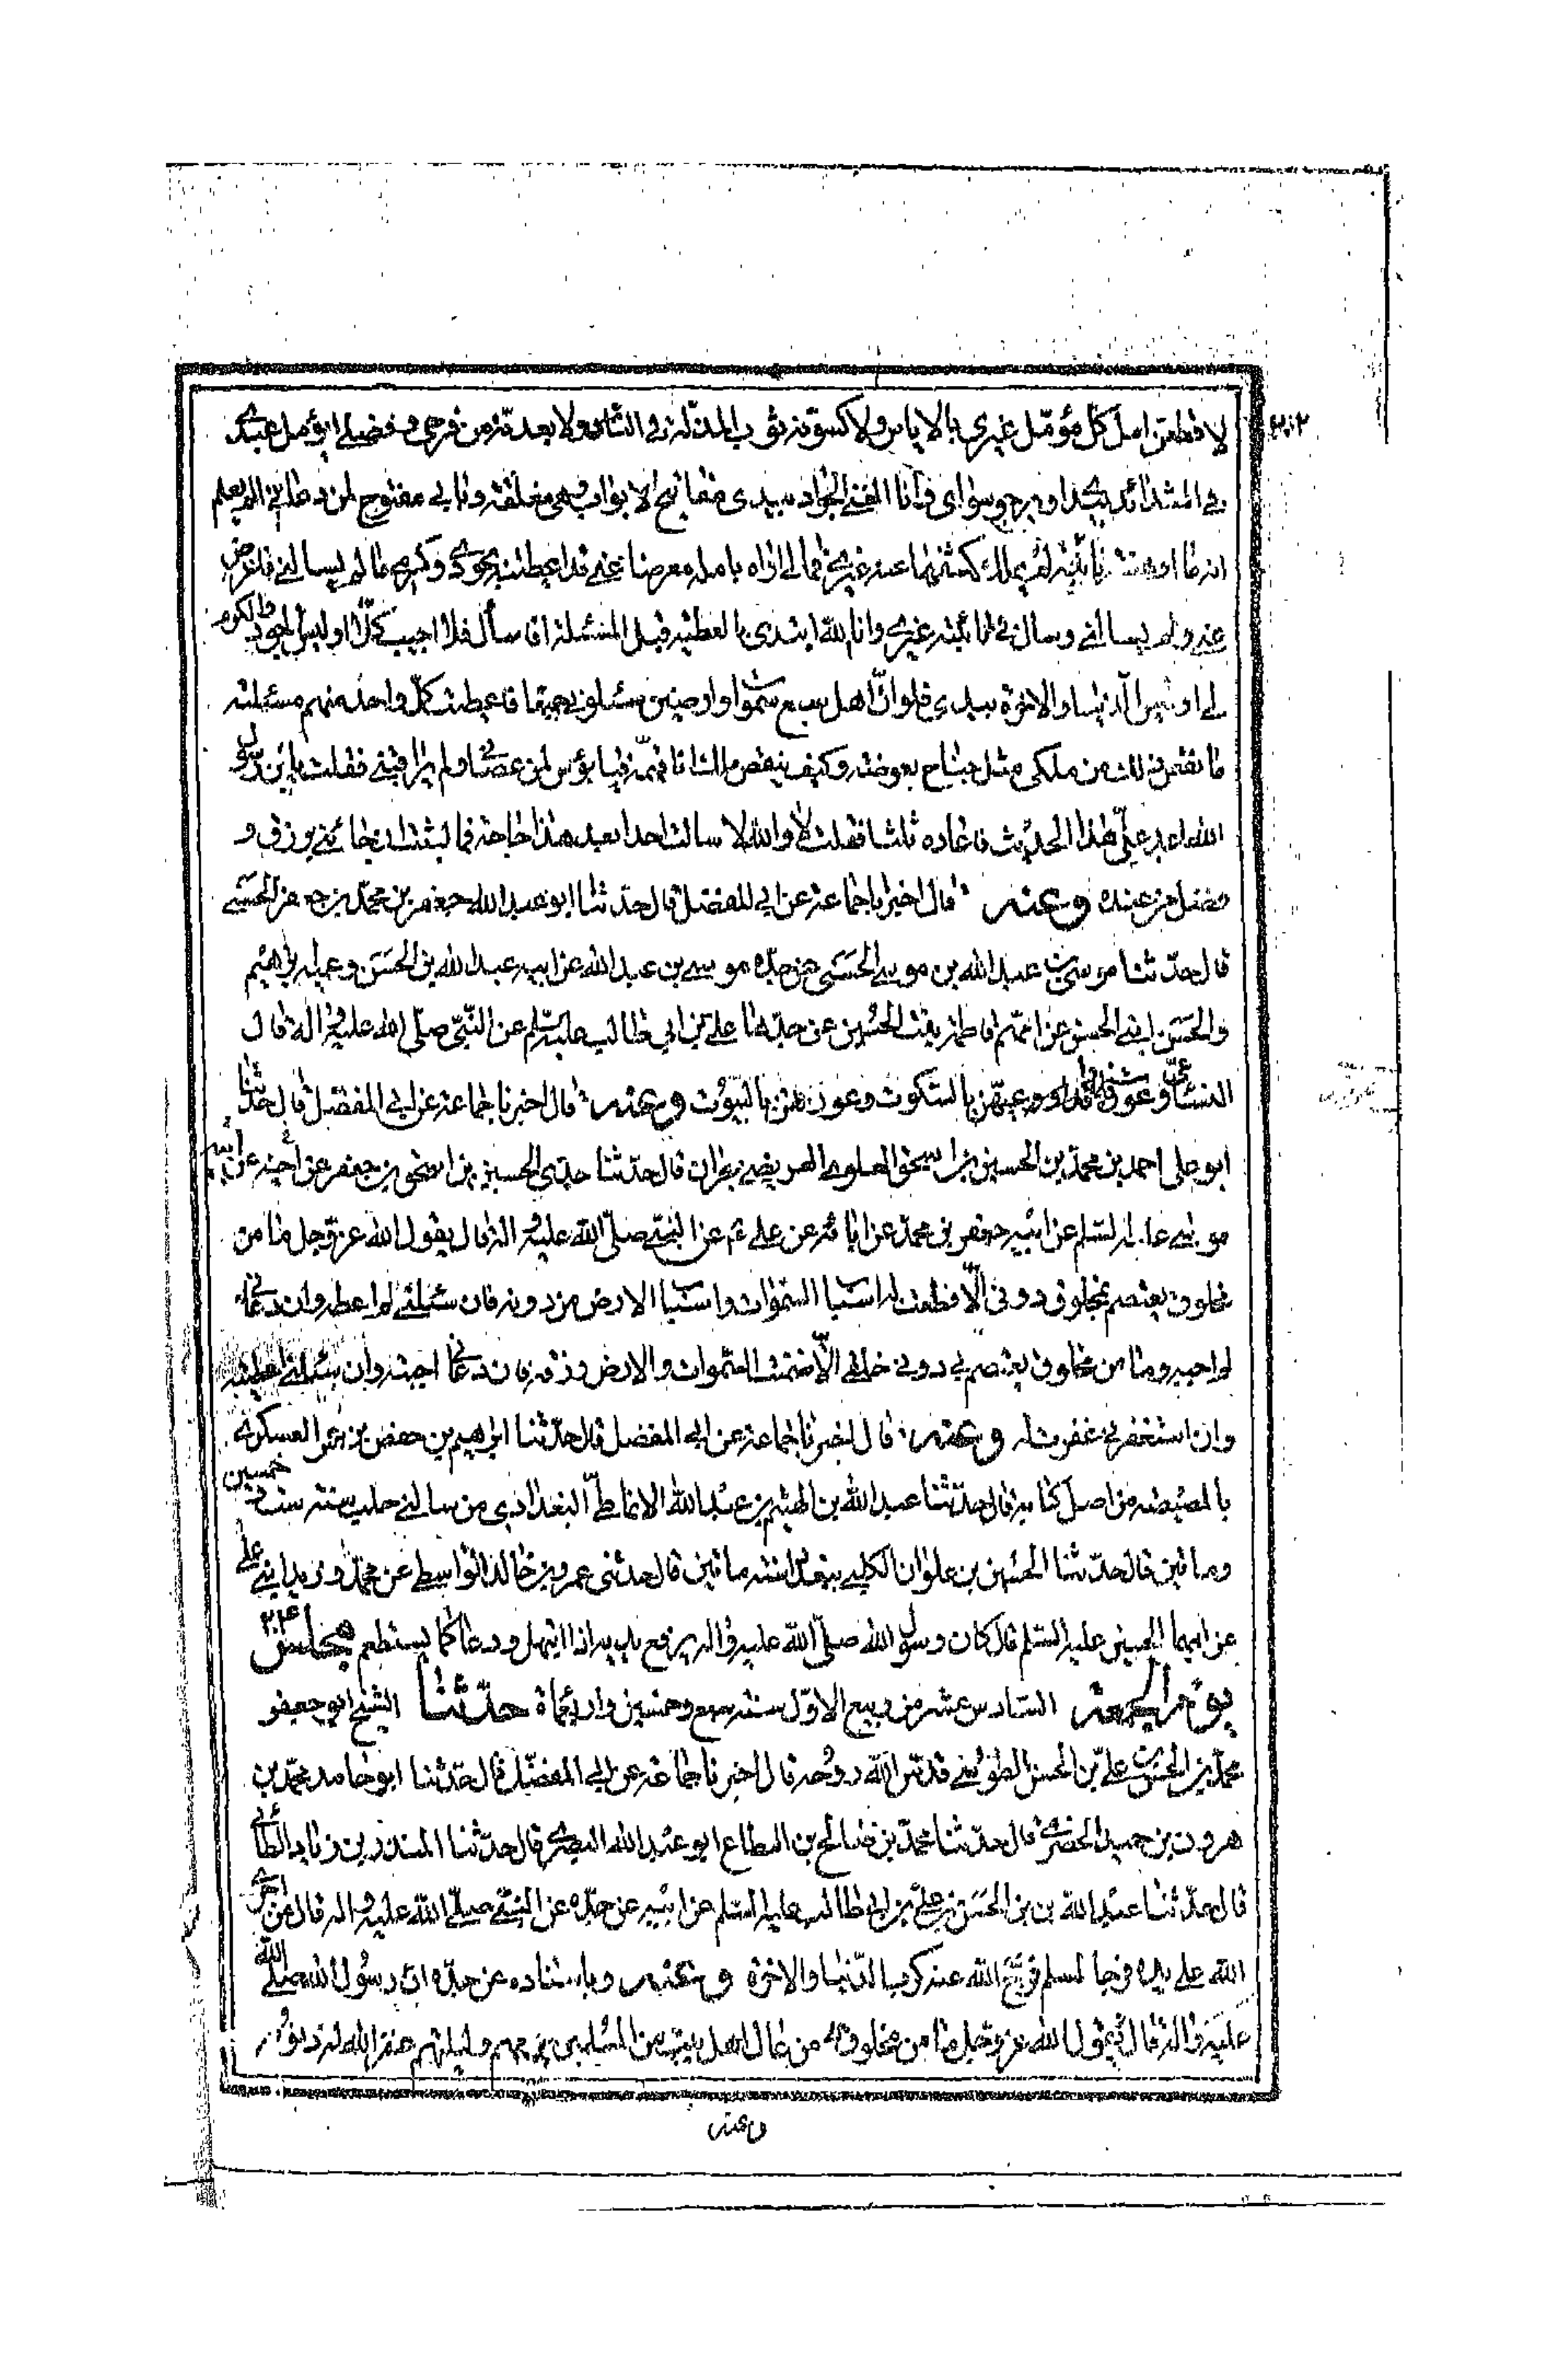 لاقطعن امل كل مؤمّل غيري بالاياس ولاكسونه ثوب المذلة في الناس ولابعدنّه من فرجي وفضلي ايؤمل عبدي
في الشدائد بيدي او يرجو سواي وانا الغني الجواد بيدي مفاتيح الابواب وهي مغلقة وبابي مفتوح لمن دعاني الم يعلم
انه ما اوهنته نائبة لم يملك كشفها عنه غيري فمالي اراه بامله معرضا عني قد اعطيته بجودي وكرمي ما لم يسالني فاعرض
عني ولم يسالني وسال في نائبته غيري وانا الله ابتدي بالعطية قبل المسئلة افاسأل فلا اجيب كلّا او ليس الجود والكرم
لي او ليس الدنيا والاخرة بيدي فلو انّ اهل سبع سموات وارضين سئلوني جميعا فاعطيت كلّ واحد منهم مسئلته
ما نقص ذلك من ملكي مثل جناح بعوضة وكيف ينقص ملك انا قيّمه فيا بؤس لمن عصاني ولم يراقبني فقلت يابن رسول
الله اعد عليّ هذا الحديث فاعاده ثلثا فقلت لا والله لا سالت احدا بعد هذا حاجة فما لبثت ان جائني برزق و
فضل من عنده وعنه قال اخبرنا جماعة عن ابي المفضل قال حدثنا ابو عبد الله جعفر بن محمد بن جعفر الحسني
قال حدّثنا موسى بن عبد الله بن موسى الحسني عن جدّه موسى بن عبد الله عن ابيه عبد الله بن الحسن وعميه ابراهيم
والحسن ابني الحسن عن امّهم فاطمة بنت الحسين عن جدّها علي بن ابي طالب عليه السّلم عن النّبيّ صلّى الله عليه واله قال
النساء عيّ وعورات فداووا عيهّن بالسّكوت وعوراتهن بالبيوت وعنه قال اخبرنا جماعة عن ابي المفضل قال حدّثنا
ابو علي احمد بن محمد بن الحسين بن اسحق العلوي العريضي بحران قال حدّثنا جدّي الحسين بن اسحق بن جعفر عن اخيه عن ابيه
موسى عليه السلم عن ابيه جعفر بن محمد عن ابائه عن علي ع عن النّبي صلّى الله عليه واله قال يقول الله عزّ وجل ما من
مخلوق يعتصم بمخلوق دوني الّا قطعت اسباب السموات واسباب الارض من دونه فان سئلني لم اعطه وان دعاني
لم اجبه وما من مخلوق يعتصم بي دون خلقي الّا ضمنت السموات والارض رزقه فان دعاني اجبته وان سئلني اعطيته
وان استغفرني غفرت له وعنه قال اخبرنا جماعة عن ابي المفضل قال حدّثنا ابراهيم بن حفص بن عمر العسكري
بالمصيصة من اصل كتابه قال حدّثنا عبيد الله بن الهيثم بن عبيد الله الانماطيّ البغدادي من ساكني حلب سنة ست وخمسين
ومائتين قال حدّثنا الحسين بن علوان الكلبي ببغداد سنة مائتين قال حدثني عمرو بن خالد الواسطي عن محمد وزيد ابني علي
عن ابيهما الحسين عليه السّلم قال كان رسول الله صلّى الله عليه واله يرفع يديه اذا ابتهل ودعا كما يستطعم مجلس
يوم الجمعة السّادس عشر من ربيع الاوّل سنة سبع وخمسين واربعماة حدّثنا الشيخ ابو جعفر
محمد بن الحسن بن علي بن الحسن الطوسي قدّس الله روحه قال اخبرنا جماعة عن ابي المفضّل قال حدّثنا ابو حامد محمّد بن
هرون بن حميد الحضرمي قال حدّثنا محمّد بن صالح بن النطاح ابو عبد الله البصري قال حدّثنا المنذر بن زياد الطائي
قال حدّثنا عبد الله بن بن الحسن بن علي بن ابي طالب عليه السّلم عن ابيه عن جدّه عن النبي صلّى الله عليه واله قال من اجرى
الله على يده فرجا لمسلم فرّج الله عنه كرب الدّنيا والاخرة وعنه وباسناده عن جدّه ان رسول الله صلّى الله
عليه واله قال يقول الله عزّ وجل ما من مخلوق من عال اهل بيت من المسلمين يومهم وليلتهم غفر الله له ذنوبه
وعنه